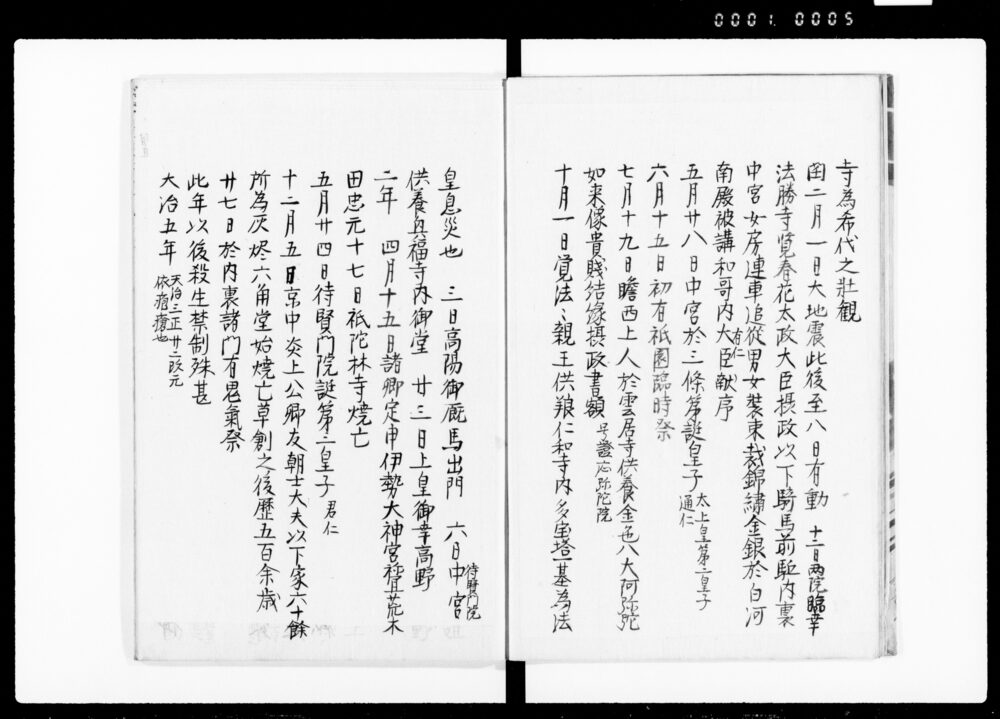 0001.0005
寺為希代之壯観
閏二月一日大地震此後至八日有動 十二日両院臨幸
法勝寺覧春花太政大臣摂政以下騎馬前駈内裏
中宮女房連車追從男女裝束裁錦繍金銀於白河
南殿被講和哥内大臣有仁献序
五月廿八日中宮於三條第誕皇子 太上皇第二皇子 通仁
六月十五日初有祇園臨時祭
七月十九日瞻西上人於雲居寺供養金色八大阿弥陀
如来像貴賤結縁摂政書額 号證応弥陀院
十月一日覚法々親王供養仁和寺内多宝塔一基為法
皇息災也 三日高陽御厩馬出門 六日中宮 待賢門院
供養興福寺内御堂 廿三日上皇御幸高野
二年 四月十五日諸卿定申伊勢大神宮祢宜荒木
田忠元十七日祇陀林寺焼亡
五月廿四日待賢門院誕第三皇子 君仁
十二月五日京中炎上公卿友朝士大夫以下家六十餘
所為灰燼六角堂始焼亡草創之後歴五百余歳
廿七日於内裏諸門有鬼氣祭
此年以後殺生禁制殊甚
大治五年 天治三正廿二改元 依疱瘡也